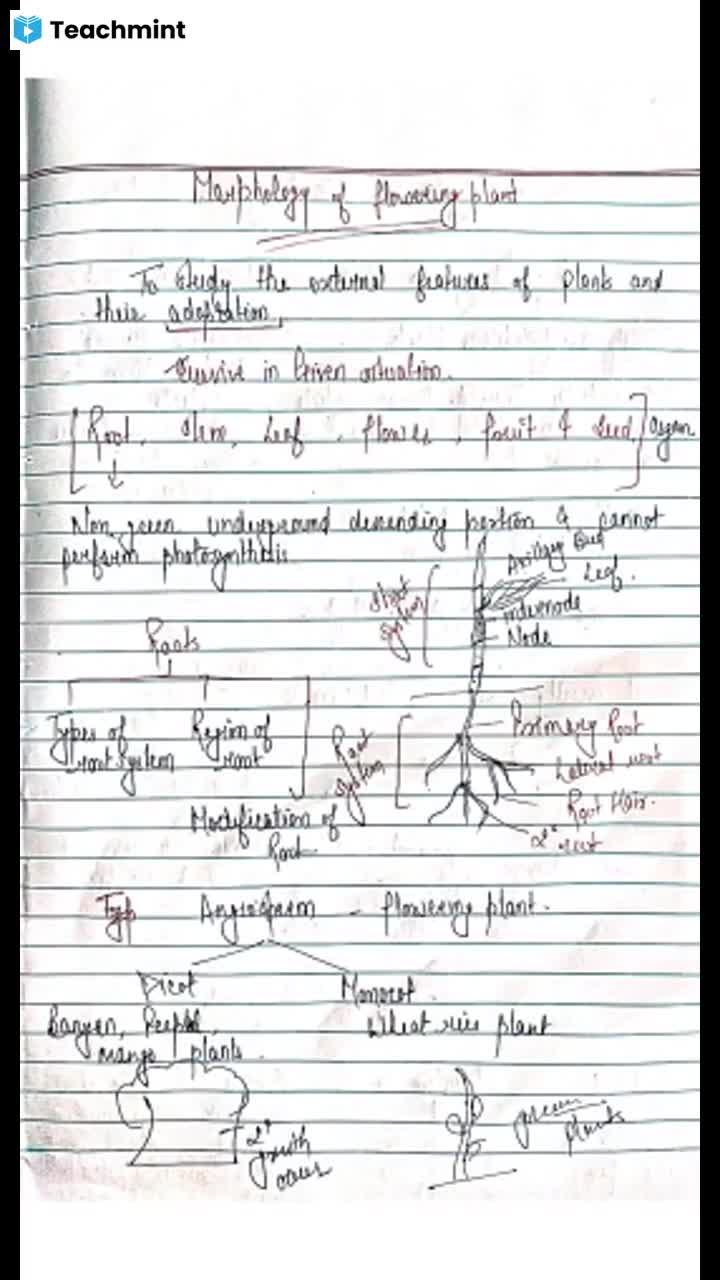 Teachmint
Morphology of flowering plant
To study the external features of plants and
their adaptation.
in Given situation.
[Root, Stem, Leaf, flower, fruit & Seed] Organ
Non green underground decending portion & cannot
perform photosynthesis
Axillary Bud
Leaf.
Internode
Node
Shoot
system
Roots
Types of
root system
Region of
root
Modification of
Root
Root
system
Primary Root
Lateral root
Root Hair.
2° root
Typ Angiosperm - flowering plant.
Dicot Monocot
Banyan, Peepal, Wheat rice plant
mango plants
2°
growth
occurs
green
plants